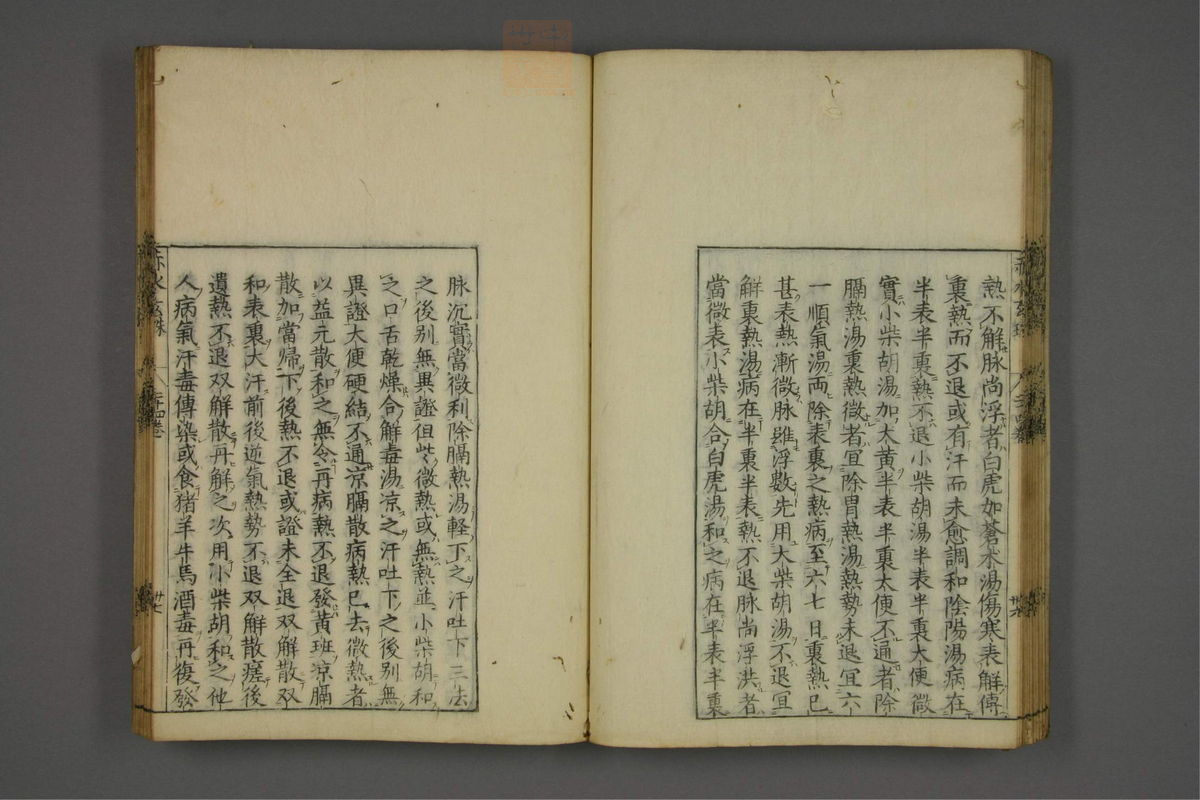 熱不解脉尚浮者白虎加蒼朮湯傷寒表解傳
裏熱而不退或有汗而未愈調和陰陽湯病在
半表半裏熱不退小柴胡湯半表半裏大便微
實小柴胡湯加大黄半表半裏大便不通者除
膈熱湯裏熱微者宜除胃熱湯熱勢未退宜六
一順氣湯両除表裏之熱病至六七日裏熱已
甚表熱漸微脉雖浮數先用大柴胡湯不退宜
解裏熱湯病在半裏半表熱不退脉尚浮洪者
當微表小柴胡合白虎湯和之病在半表半裏
赤水玄珠
脉沉實當微利除膈熱湯軽下之汗吐下三法
之後别無異證但些微熱或無熱並小柴胡和
之口舌乾燥合解毒湯凉之汗吐下之後别無
異證大便硬結不通凉膈散病熱已去微熱者
以益元散和之無令再病熱不退發黄班凉膈
散加當帰下後熱不退或證未全退双解散双
和表裏大汗前後逆氣熱勢不退双解散瘥後
遺熱不退双解散再解之次用小柴胡和之他
人病氣汗毒傳染或食猪羊牛馬酒毒再復發
赤水玄珠
卅七